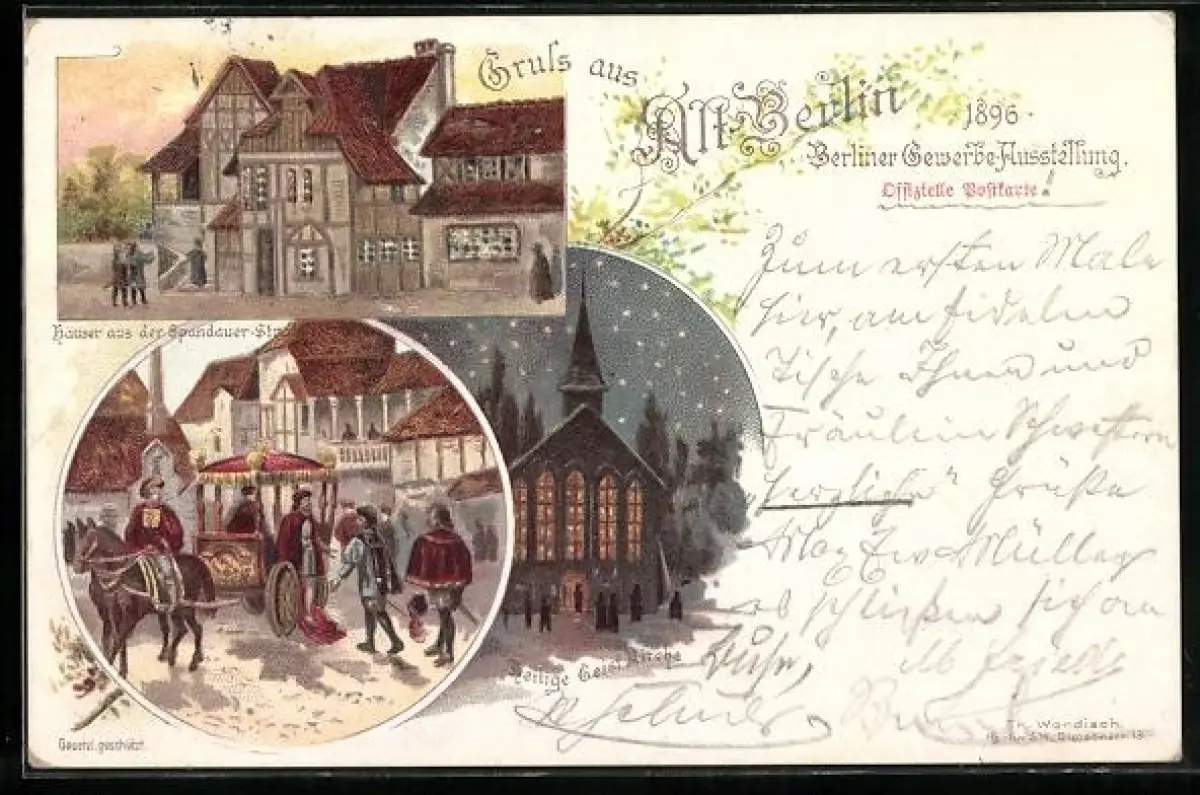 Gruss aus
Alt-Berlin
1896.
Berliner Gewerbe-Ausstellung.
Offizielle Postkarte
Häuser aus der Spandauer-Str
Zum ersten Male
hier, am fidelen
Tische Ihnen und
Fräulein Schwestern
herzliche Grüße
Max Müller
schließen sich an
Heilige Geist Kirche
Gesetzl. geschützt.
Th. Wendisch.
Berlin